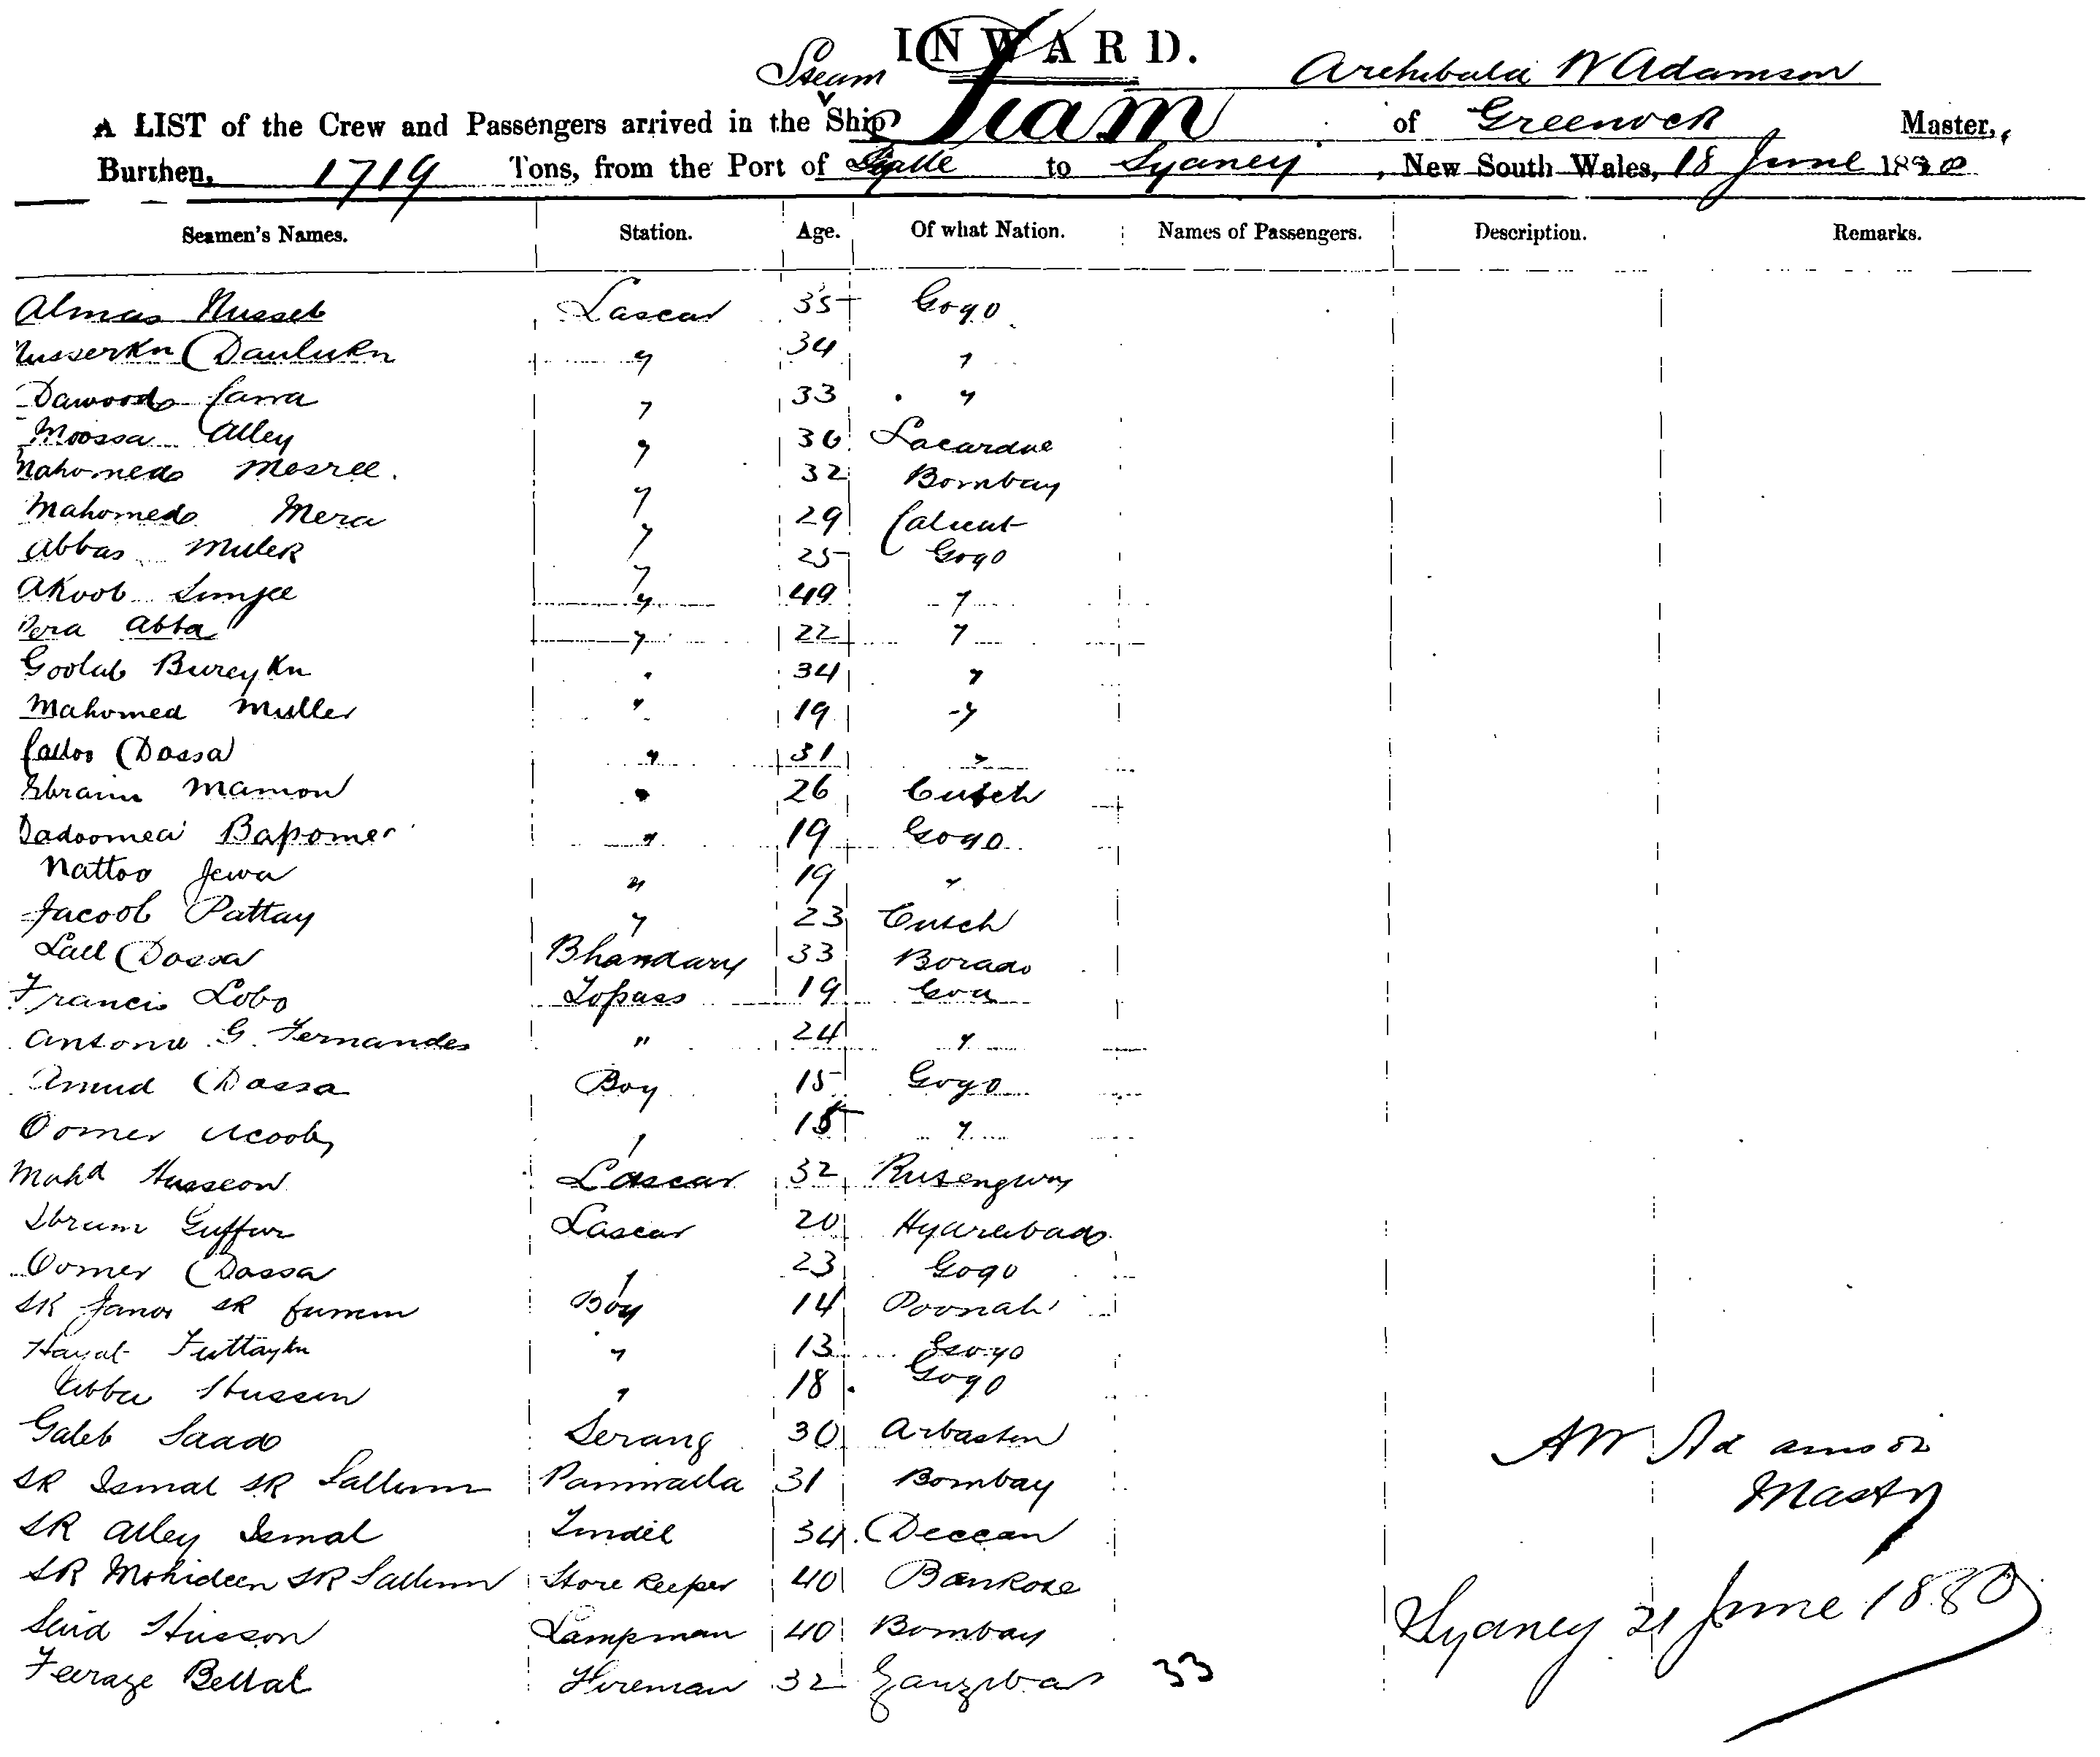 INWARD.
Steam Archibald W Adamson
A LIST of the Crew and Passengers arrived in the Ship Siam of Greenock Master,
Burthen, 1719 Tons, from the Port of Galle to Sydney, New South Wales, 18 June 1880
Seamen's Names. Station. Age. Of what Nation. Names of Passengers. Description. Remarks.
Almas Nusseb Lascar 35 Gogo
Nusserkn Daulukn " 34 "
Dawood Cama " 33 "
Moossa Alley " 36
Mahomed Mesree. " 32 Bombay
Mahomed Mera " 29 Calicut
Abbas Mulek " 25 Gogo
Akoob Sumjee " 49 "
Pera Abba " 22 "
Goolab Bureykn " 34 "
Mahomed Muller " 19 "
Dossa " 31 "
Ebraim Mamon " 26 Cutch
Dadoomea Bapomea " 19 Gogo
Nattoo Jewa " 19 "
Jacoob Pattay " 23 Cutch
Lall Dossa Bhandary 33 Borado
Francis Lobo Topass 19 Goa
Antonie G. Fernandes " 24 "
Amud Dossa Boy 15 Gogo
Oomer Acoob " 15 "
Mahd Husseon Lascar 32
Ibrum Guffur Lascar 20 Hydrabad
Oomer Dossa " 23 Gogo
SK Janoo SK Boy 14 Poonah
Hayat Futtaykn " 13 Gogo
Abba Hussen " 18 Gogo
Galeb Saad Serang 30 Arbasten
SK Ismal SK Sallemn Panniwalla 31 Bombay
SK Alley Ismal Tindel 34 Deccan
SK Mohideen SK Sallemn Store Keeper 40 Bankote
Seid Husson Lampman 40 Bombay
Feeraze Bellal Fireman 32 Zanzibar 33
AW Adamson
Master
Sydney 21 June 1880